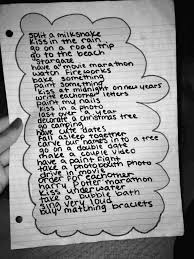 split a milkshake
kiss in the rain
go on a road trip
go to the beach
stargaze
have a movie marathon
watch fireworks
bake something
paint something
kiss at midnight on new years
write eachother letters
paint my nails
kiss in a photo
last over a year
decorate a christmas tree
go camping
have cute dates
fall asleep together
carve our names into a tree
go on a double date
make a couple video
have a paint fight
take a photobooth photo
drive in movie
order for eachother
harry potter marathon
kiss underwater
take a bubble bath
sing very loud
buy matching braclets